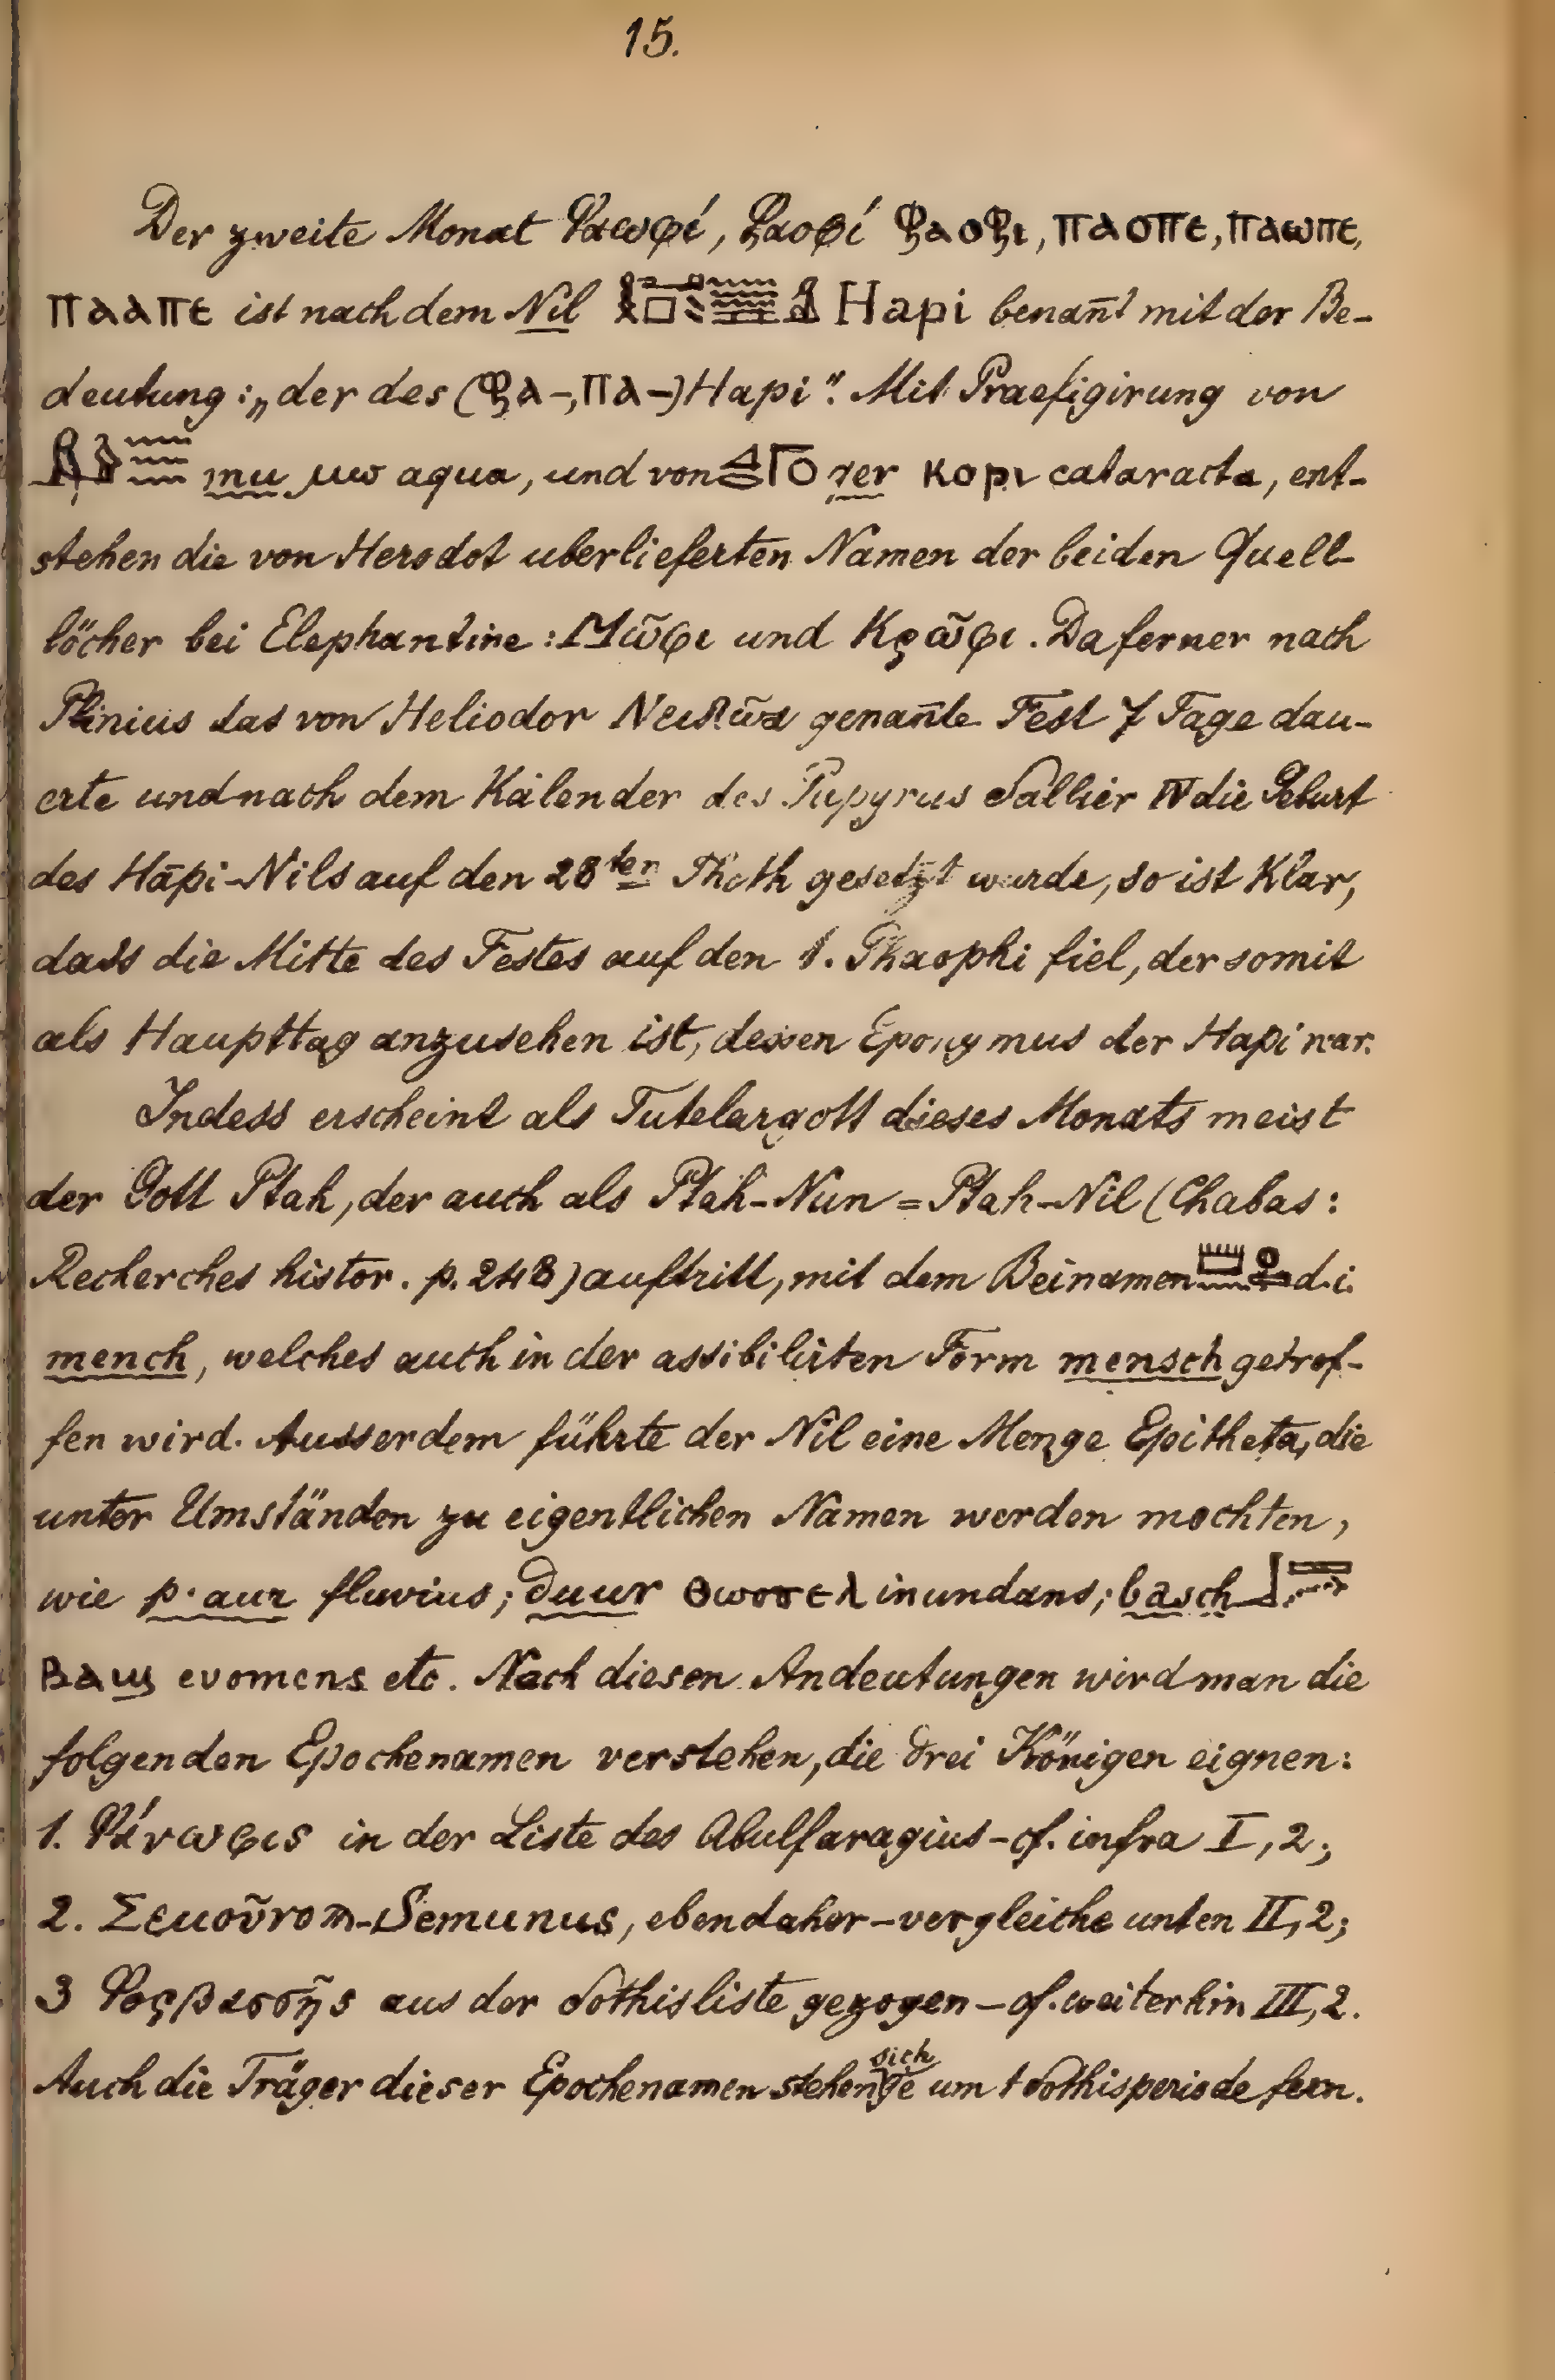 15.
Der zweite Monat Φαωφί, Φαοφί ⲫⲁⲟⲫⲓ, ⲡⲁⲟⲡⲉ, ⲡⲁⲱⲡⲉ,
ⲡⲁⲁⲡⲉ ist nach dem Nil Hapi benan̄t mit der Be-
deutung: „der des (ⲫⲁ-, ⲡⲁ-) Hapi". Mit Praefigirung von
mu ⲙⲱ aqua, und von ⲕⲟⲣⲓ cataracta, ent-
stehen die von Herodot uberlieferten Namen der beiden Quell-
löcher bei Elephantine: Μῶφι und Κρῶφι. Da ferner nach
Plinius das von Heliodor Νειλῶα genan̄te Fest 7 Tage dau-
erte und nach dem Kalender des Papyrus Sallier IV die Geburt
des Hāpi-Nils auf den 28ten Thoth gesetzt wurde, so ist klar,
dass die Mitte des Festes auf den 1. Phaophi fiel, der somit
als Haupttag anzusehen ist, dessen Eponymus der Hapi war.
Indess erscheint als Tutelargott dieses Monats meist
der Gott Ptah, der auch als Ptah-Nun = Ptah-Nil (Chabas:
Recherches histor. p. 248) auftritt, mit dem Beinamen d. i.
mench, welches auch in der assibilirten Form mensch getrof-
fen wird. Ausserdem führte der Nil eine Menge Epitheta, die
unter Umständen zu eigentlichen Namen werden mochten,
wie p·aur fluvius; inundans; basch
ⲃⲁϣ evomens etc. Nach diesen Andeutungen wird man die
folgenden Epochenamen verstehen, die drei Königen eignen:
1. Φάνωφις in der Liste des Abulfaragius - cf. infra I, 2;
2. Semunus, ebendaher - vergleiche unten II, 2;
3 aus der Sothisliste gezogen - cf. weiterhin III, 2.
Auch die Träger dieser Epochenamen stehen sich je um 1 Sothisperiode fern.